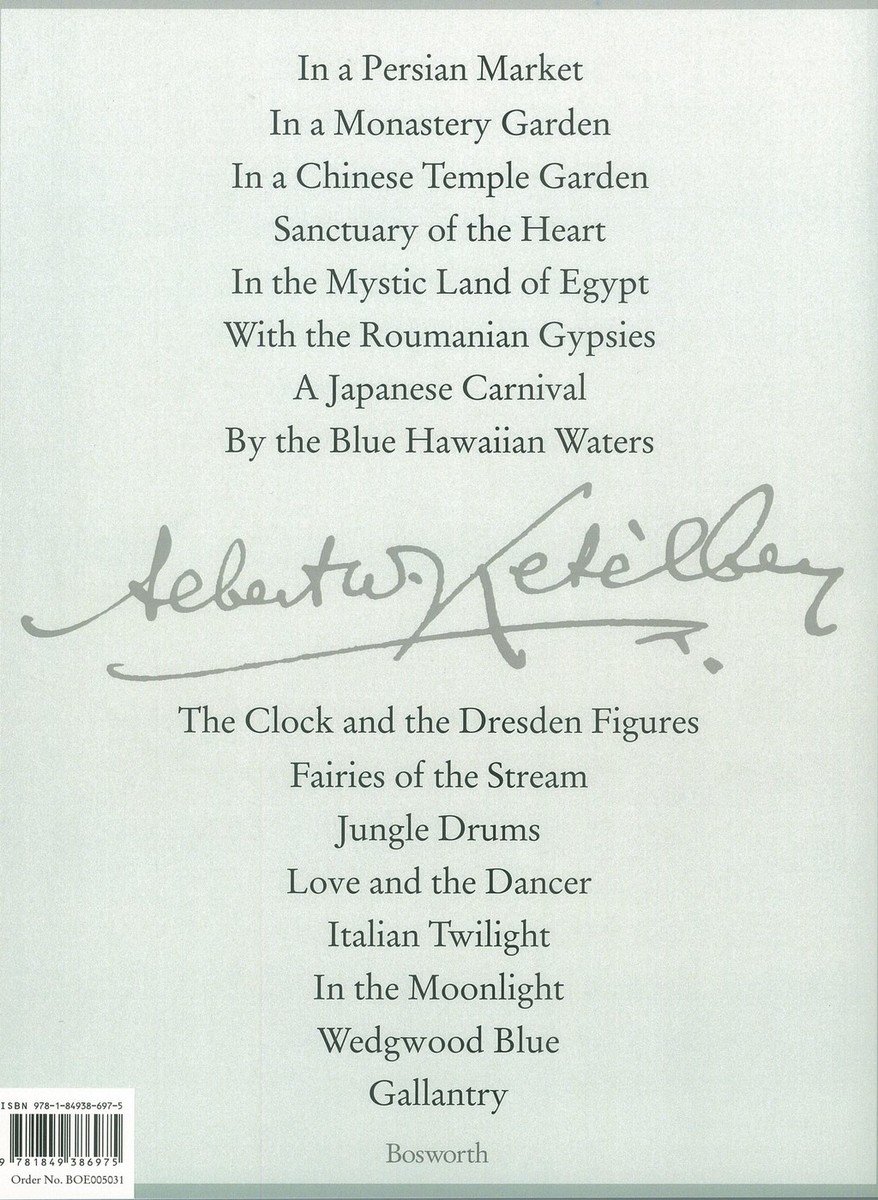 In a Persian Market
In a Monastery Garden
In a Chinese Temple Garden
Sanctuary of the Heart
In the Mystic Land of Egypt
With the Roumanian Gypsies
A Japanese Carnival
By the Blue Hawaiian Waters
Albert W. Ketèlbey
The Clock and the Dresden Figures
Fairies of the Stream
Jungle Drums
Love and the Dancer
Italian Twilight
In the Moonlight
Wedgwood Blue
Gallantry
Bosworth
ISBN 978-1-84938-697-5
9 781849 386975
Order No. BOE005031